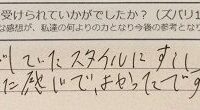 受けられていかがでしたか？（ズバリ1
な感想が、私達の何よりの力となり今後の参考とな
していたスタイルにすし
た感じで、よかったです